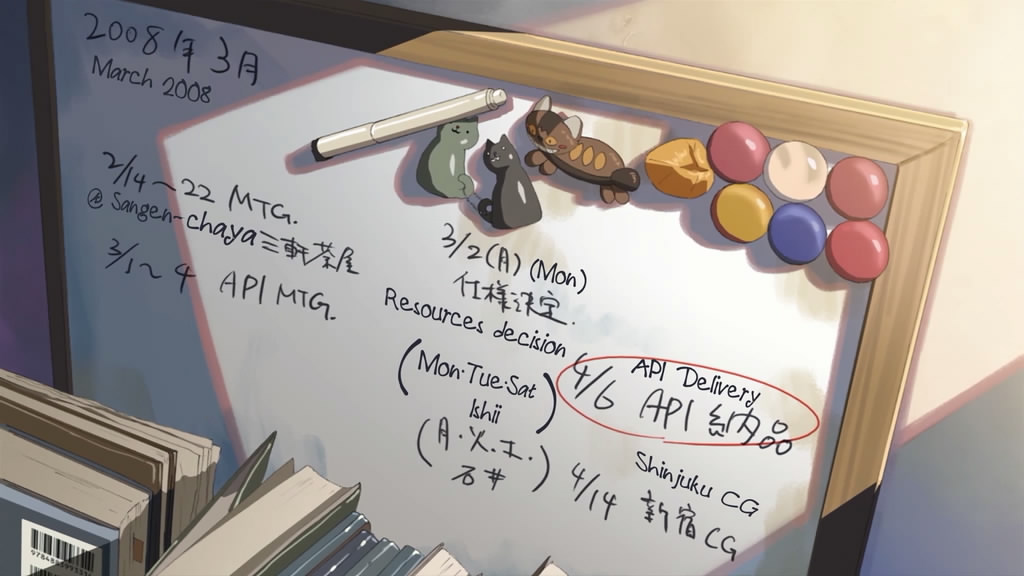 2008年3月
March 2008
2/14～22 MTG.
@ Sangen-chaya 三軒茶屋
3/1～4 API MTG.
3/2(月) (Mon)
仕様決定.
Resources decision
(Mon·Tue·Sat
Ishii)
(月·火·土.
石井)
API Delivery
4/6 API 納品
Shinjuku CG
4/14 新宿CG